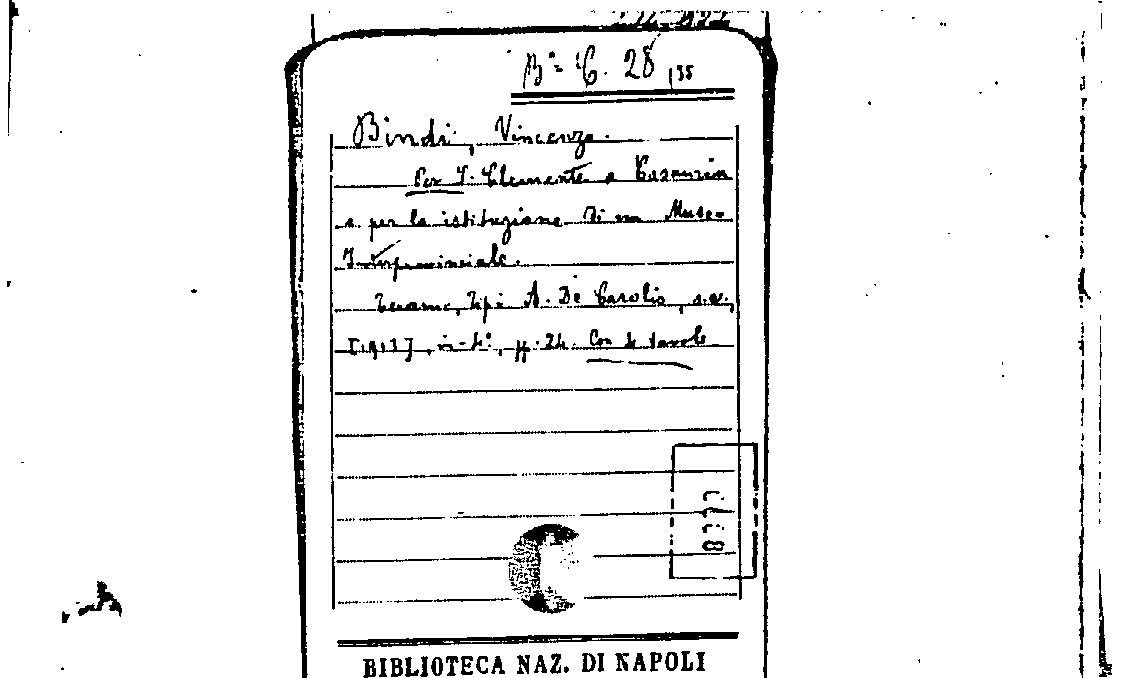 Bª C. 28 135
Bindi, Vincenzo.
Per S. Clemente a Casauria
e per la istituzione di un Museo
Interprovinciale.
Teramo, Tipi A. De Carolis, s.a.,
[1913], in-4º, pp. 24. Con 4 tavole
BIBLIOTECA NAZ. DI NAPOLI